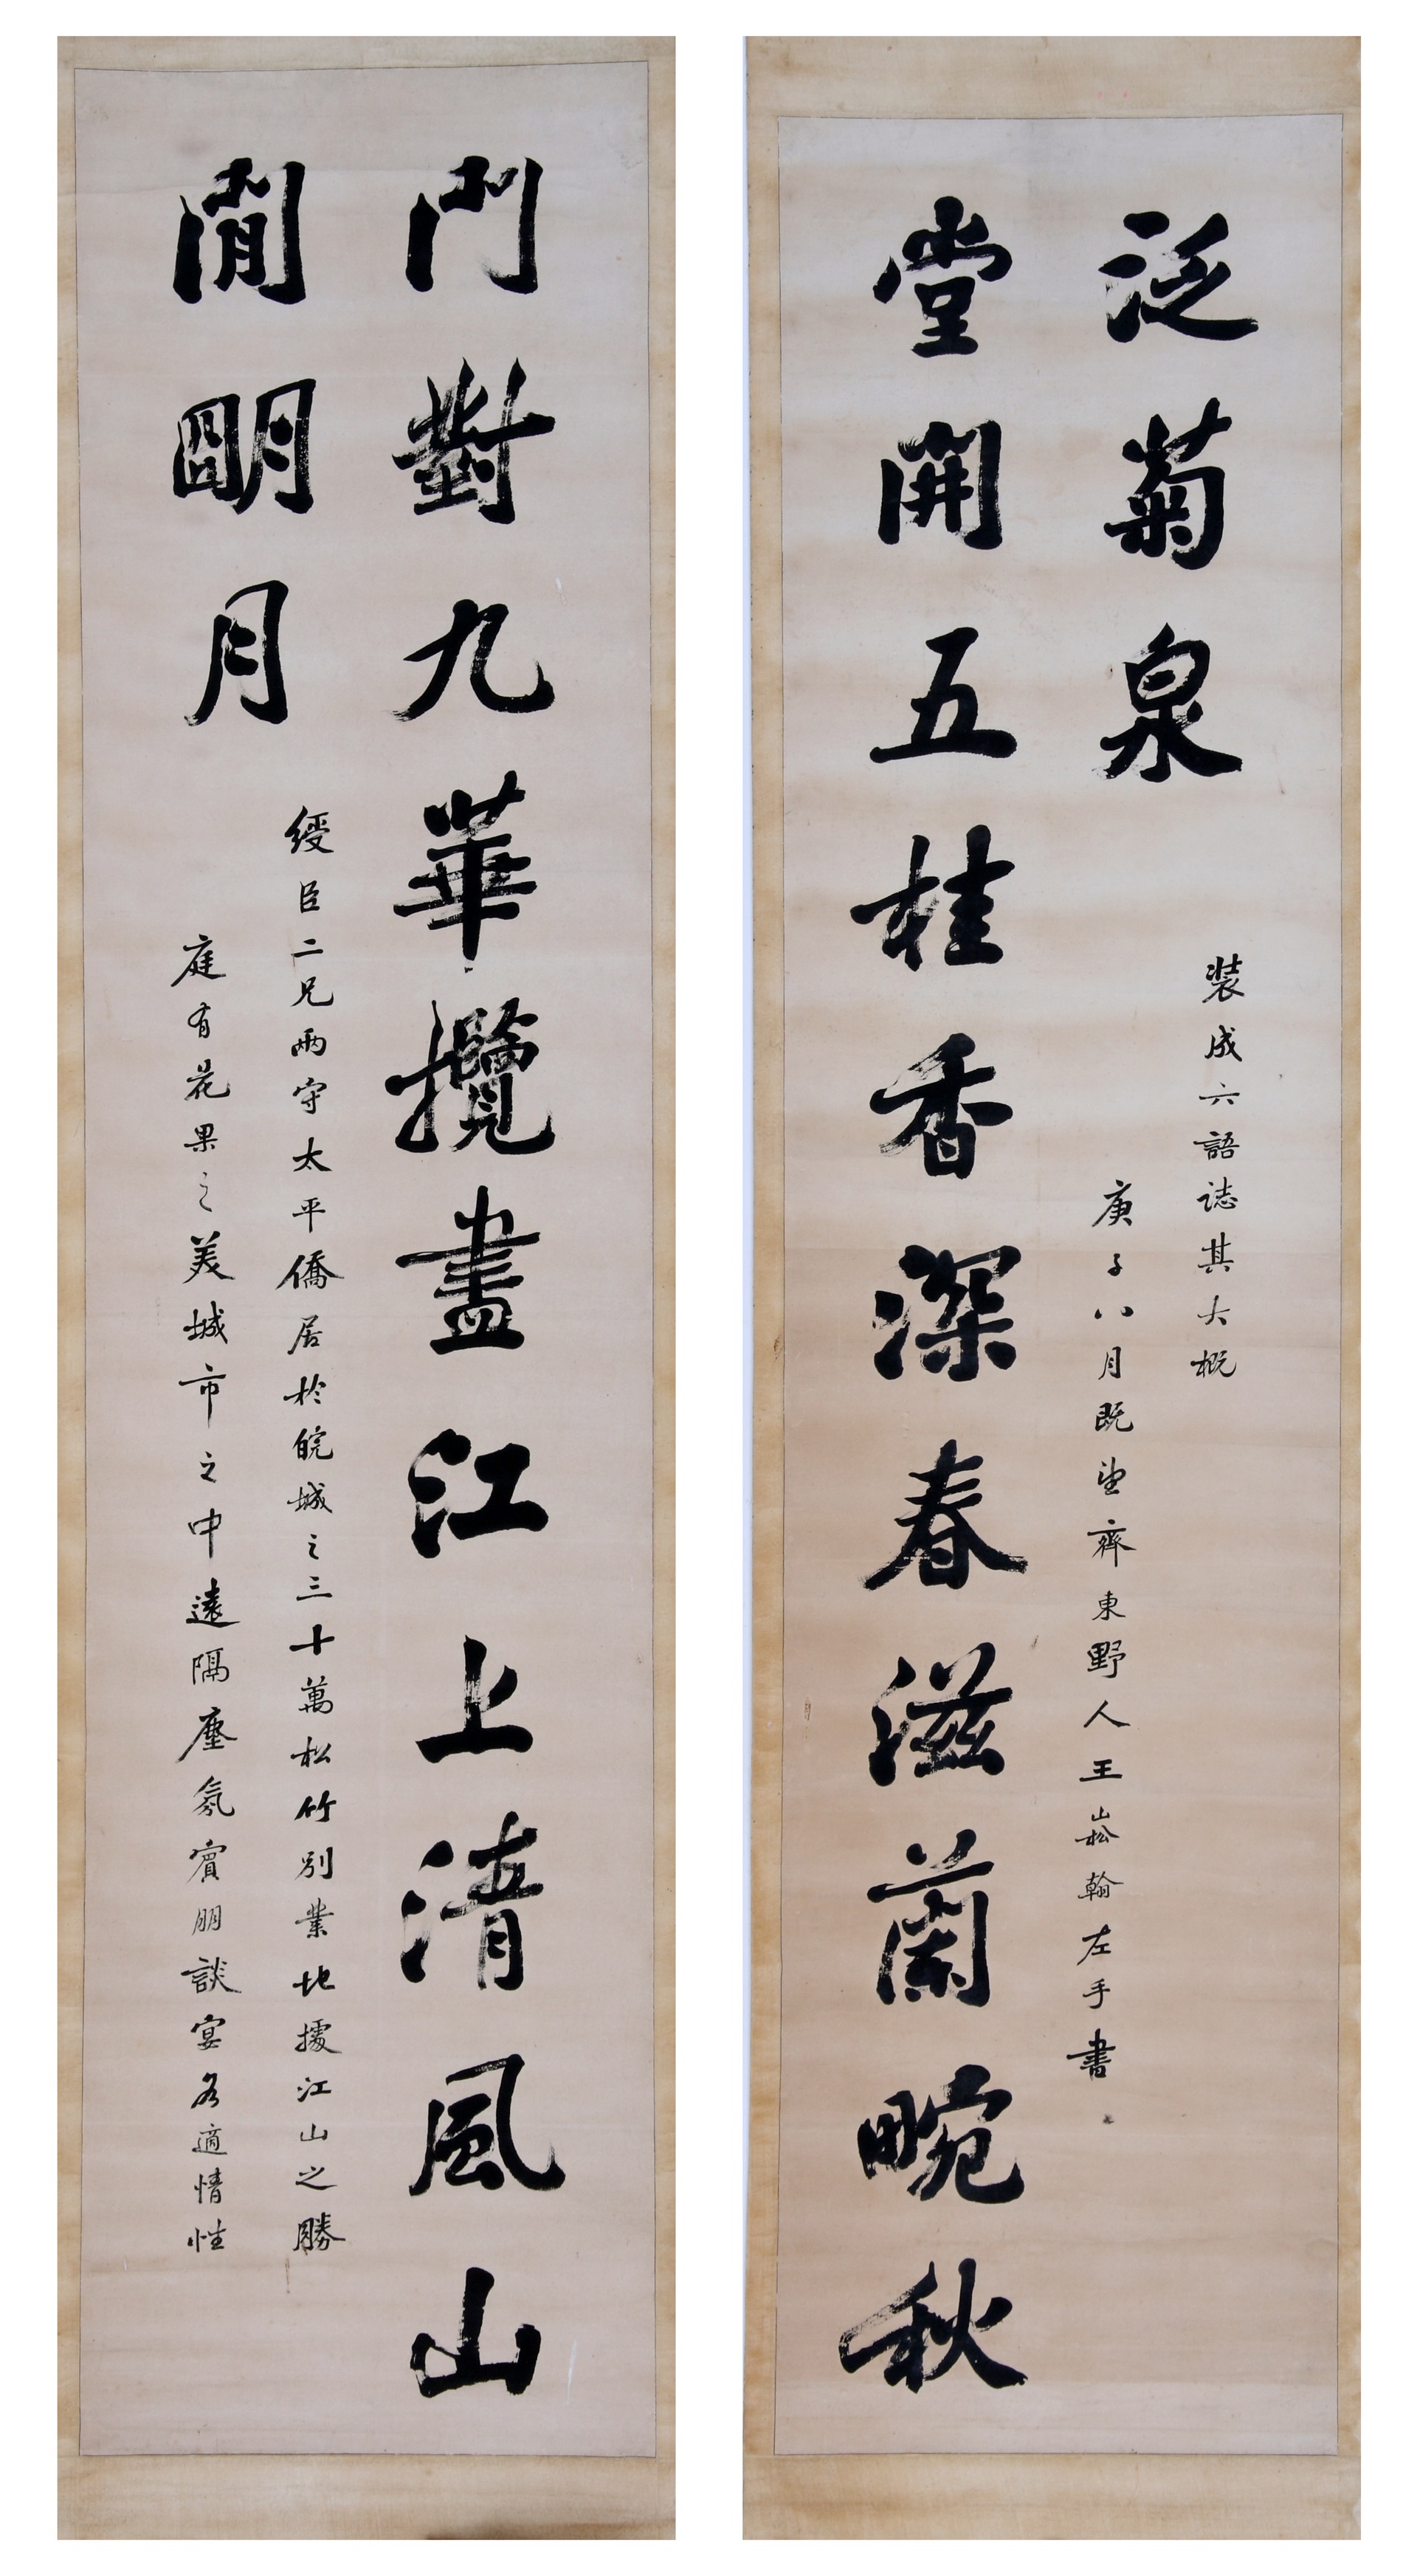 門對九華攬盡江上清風山
閒朙月
綬臣二兄兩守太平僑居於皖城之三十萬松竹別業地據江山之勝
庭有花果之美城市之中遠隔塵氛賓朋談宴各適情性
堂開五桂香深春滋蘭畹秋
泛菊泉
裝成六語誌其大概
庚子八月既望齊東野人王崧翰左手書